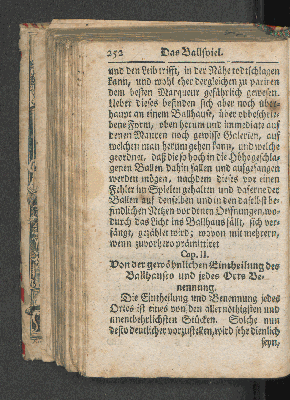 252 Das Ballspiel.
und den Leib trifft, in der Nähe todt schlagen
kann, und wohl eher dergleichen zu pariren
dem besten Marqueur gefährlich gewesen.
Ueber dieses befinden sich aber noch über-
haupt an einem Ballhause, über
Form, oben herum und immediate auf
denen Mauren noch gewisse Galerien, auf
welchen man herum gehen kann, und welche
geordnet, daß die so hoch in die Höhe geschla-
genen Ballen dahin fallen und aufgefangen
werden mögen, nachdem dieses vor einen
Fehler im Spielen gehalten und daferne der
Ballen auf denselben und in den daselbst be-
findlichen Netzen vor denen Oeffnungen, wo-
durch das Licht ins Ballhaus fällt, sich ver-
fängt, gezählet wird; wovon mit mehrern,
wenn zuvorhero prämittiret
Cap. II.
Von der gewöhnlichen Eintheilung des
Ballhauses und jedes Orts Be-
nennung.
Die Eintheilung und Benennung jedes
Ortes ist eines von den allernöthigsten und
unentbehrlichsten Stücken. Solche nun
desto deutlicher vorzustellen, wird sehr dienlich
seyn,